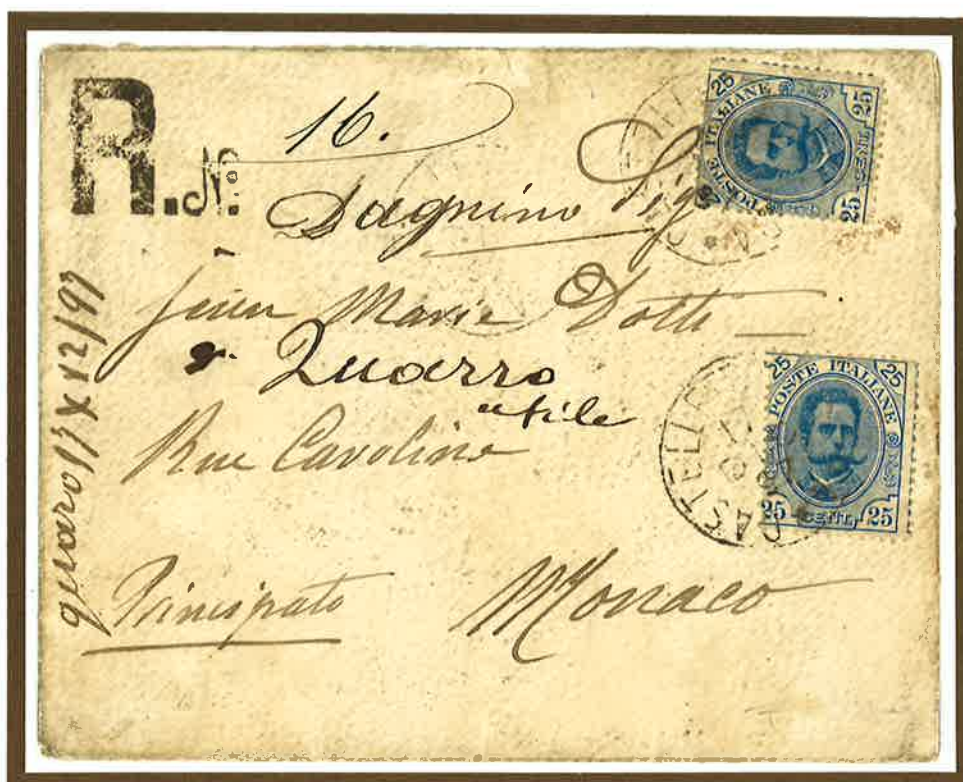 R. N.º 16.
Sig
Dagnino
Jean Marie Dotti
Quarro
Rue Caroline
Principato Monaco
25 POSTE ITALIANE 25
25 CENT. 25
25 POSTE ITALIANE 25
25 CENT. 25